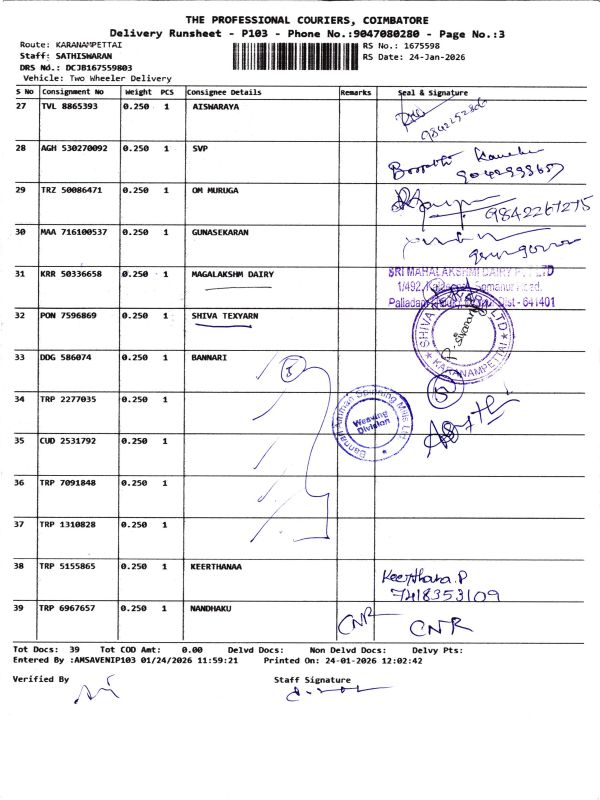 THE PROFESSIONAL COURIERS, COIMBATORE
Delivery Runsheet - P103 - Phone No.:9047080280 - Page No.:3
Route: KARANAMPETTAI
RS No.: 1675598
Staff: SATHISWARAN
RS Date: 24-Jan-2026
DRS No.: DCJB167559803
Vehicle: Two Wheeler Delivery
S No Consignment No Weight PCS Consignee Details Remarks Seal & Signature
27 TVL 8865393 0.250 1 AISWARAYA
28 AGH 530270092 0.250 1 SVP
29 TRZ 50086471 0.250 1 OM MURUGA
9842267275
30 MAA 716100537 0.250 1 GUNASEKARAN
31 KRR 50336658 0.250 1 MAGALAKSHM DAIRY
SRI MAHALAKSHMI DAIRY
1/492, Somanur Road,
Dist - 641401
32 PON 7596869 0.250 1 SHIVA TEXYARN
SHIVA LTD
KARANAMPETTAI
33 DDG 586074 0.250 1 BANNARI
5
5
34 TRP 2277035 0.250 1
Bannari Amman Spinning Mills Ltd
Weaving
Division
35 CUD 2531792 0.250 1
36 TRP 7091848 0.250 1
37 TRP 1310828 0.250 1
38 TRP 5155865 0.250 1 KEERTHANAA
Keerthana.P
7418353109
39 TRP 6967657 0.250 1 NANDHAKU
CNR CNR
Tot Docs: 39 Tot COD Amt: 0.00 Delvd Docs: Non Delvd Docs: Delvy Pts:
Entered By :AMSAVENIP103 01/24/2026 11:59:21 Printed On: 24-01-2026 12:02:42
Verified By Staff Signature